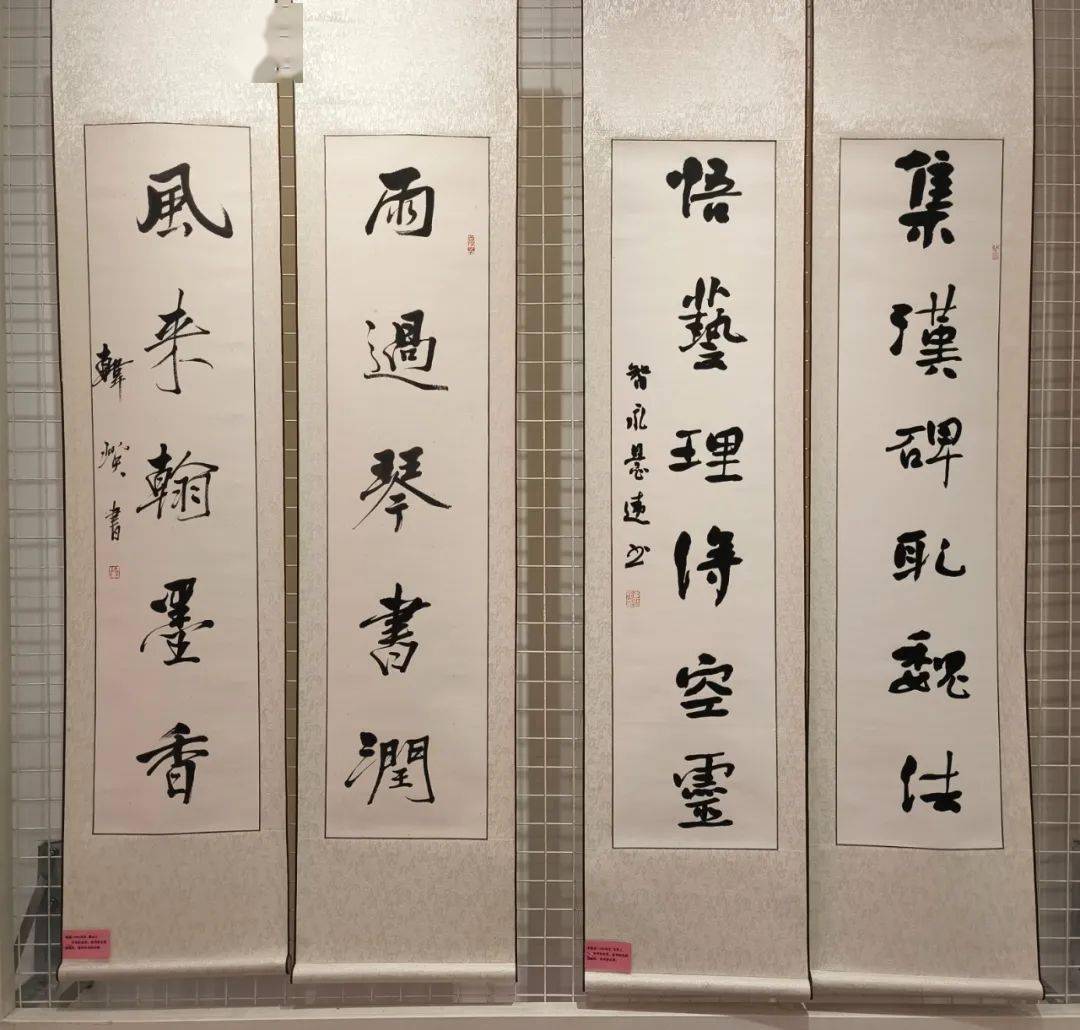 集漢碑取魏法
悟藝理得空靈
智永
雨過琴書潤
風来翰墨香
韓
書